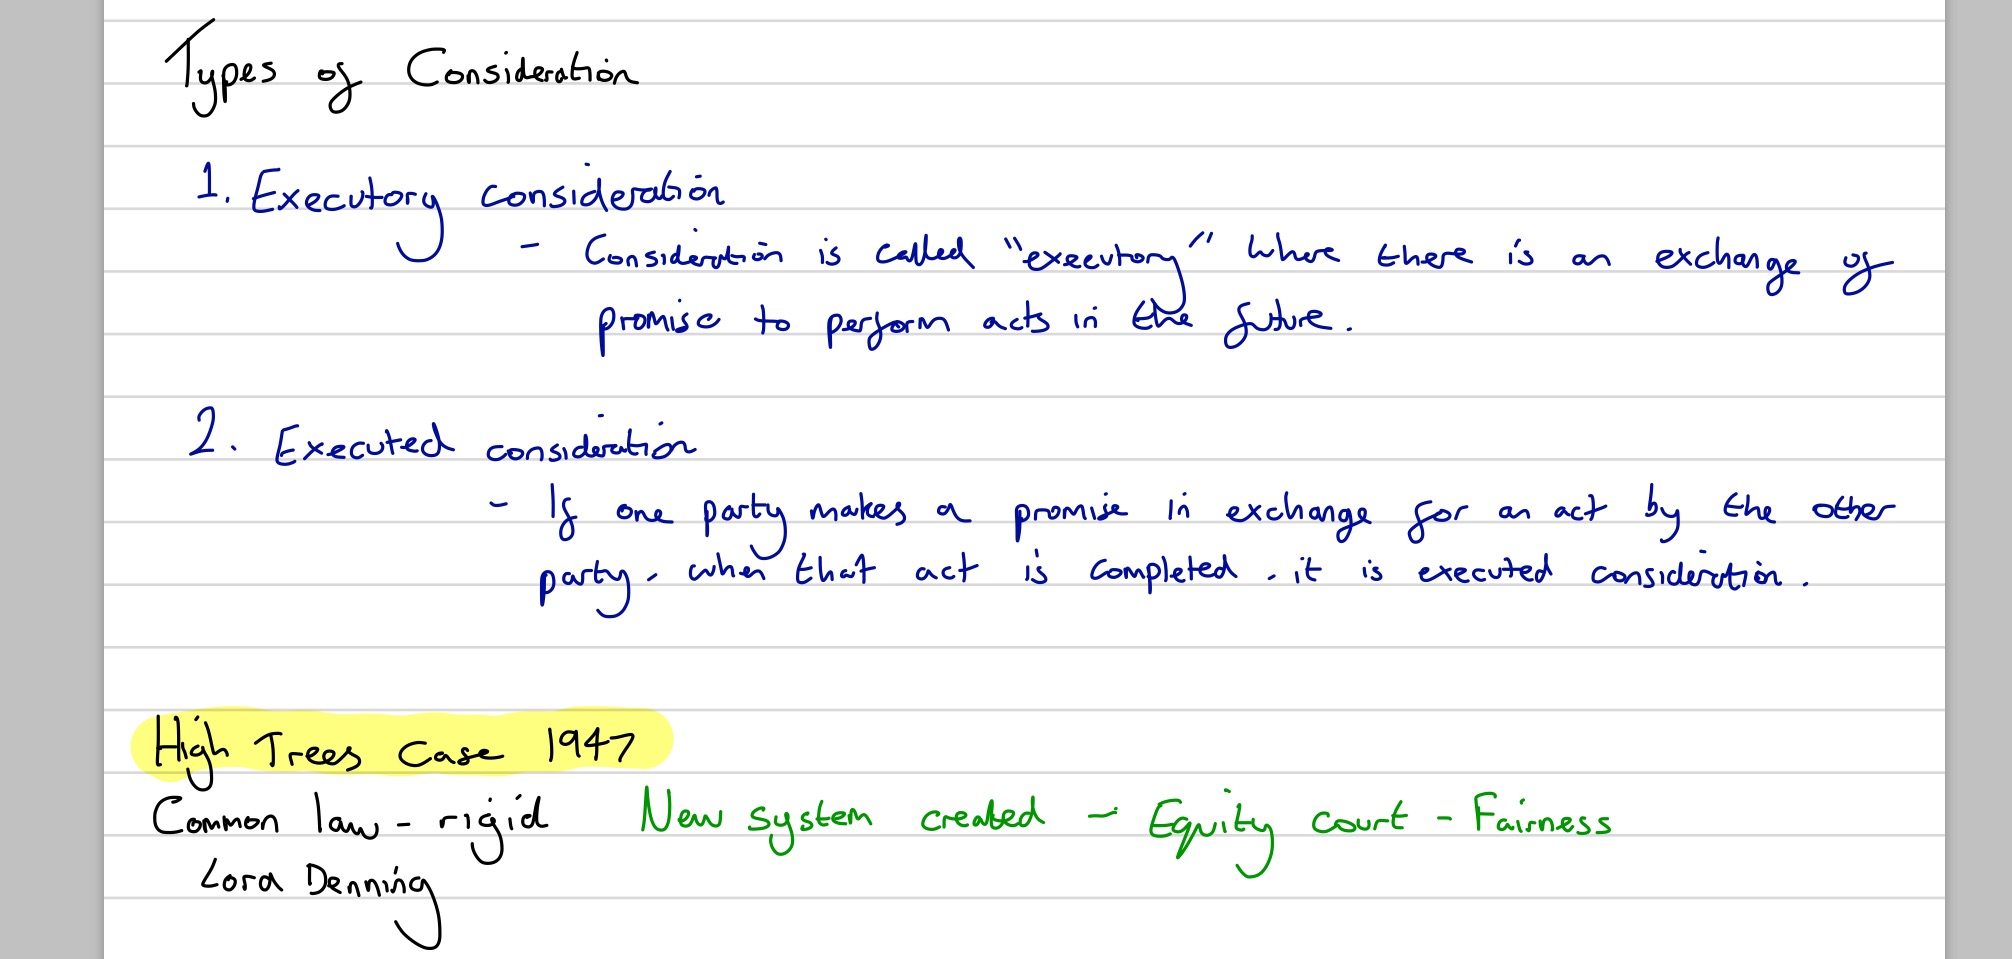 Types of Consideration
1. Executory consideration
- Consideration is called "executory" where there is an exchange of
promise to perform acts in the future.
2. Executed consideration
- If one party makes a promise in exchange for an act by the other
party, when that act is completed, it is executed consideration.
High Trees Case 1947
Common law - rigid New system created - Equity court - Fairness
Lord Denning